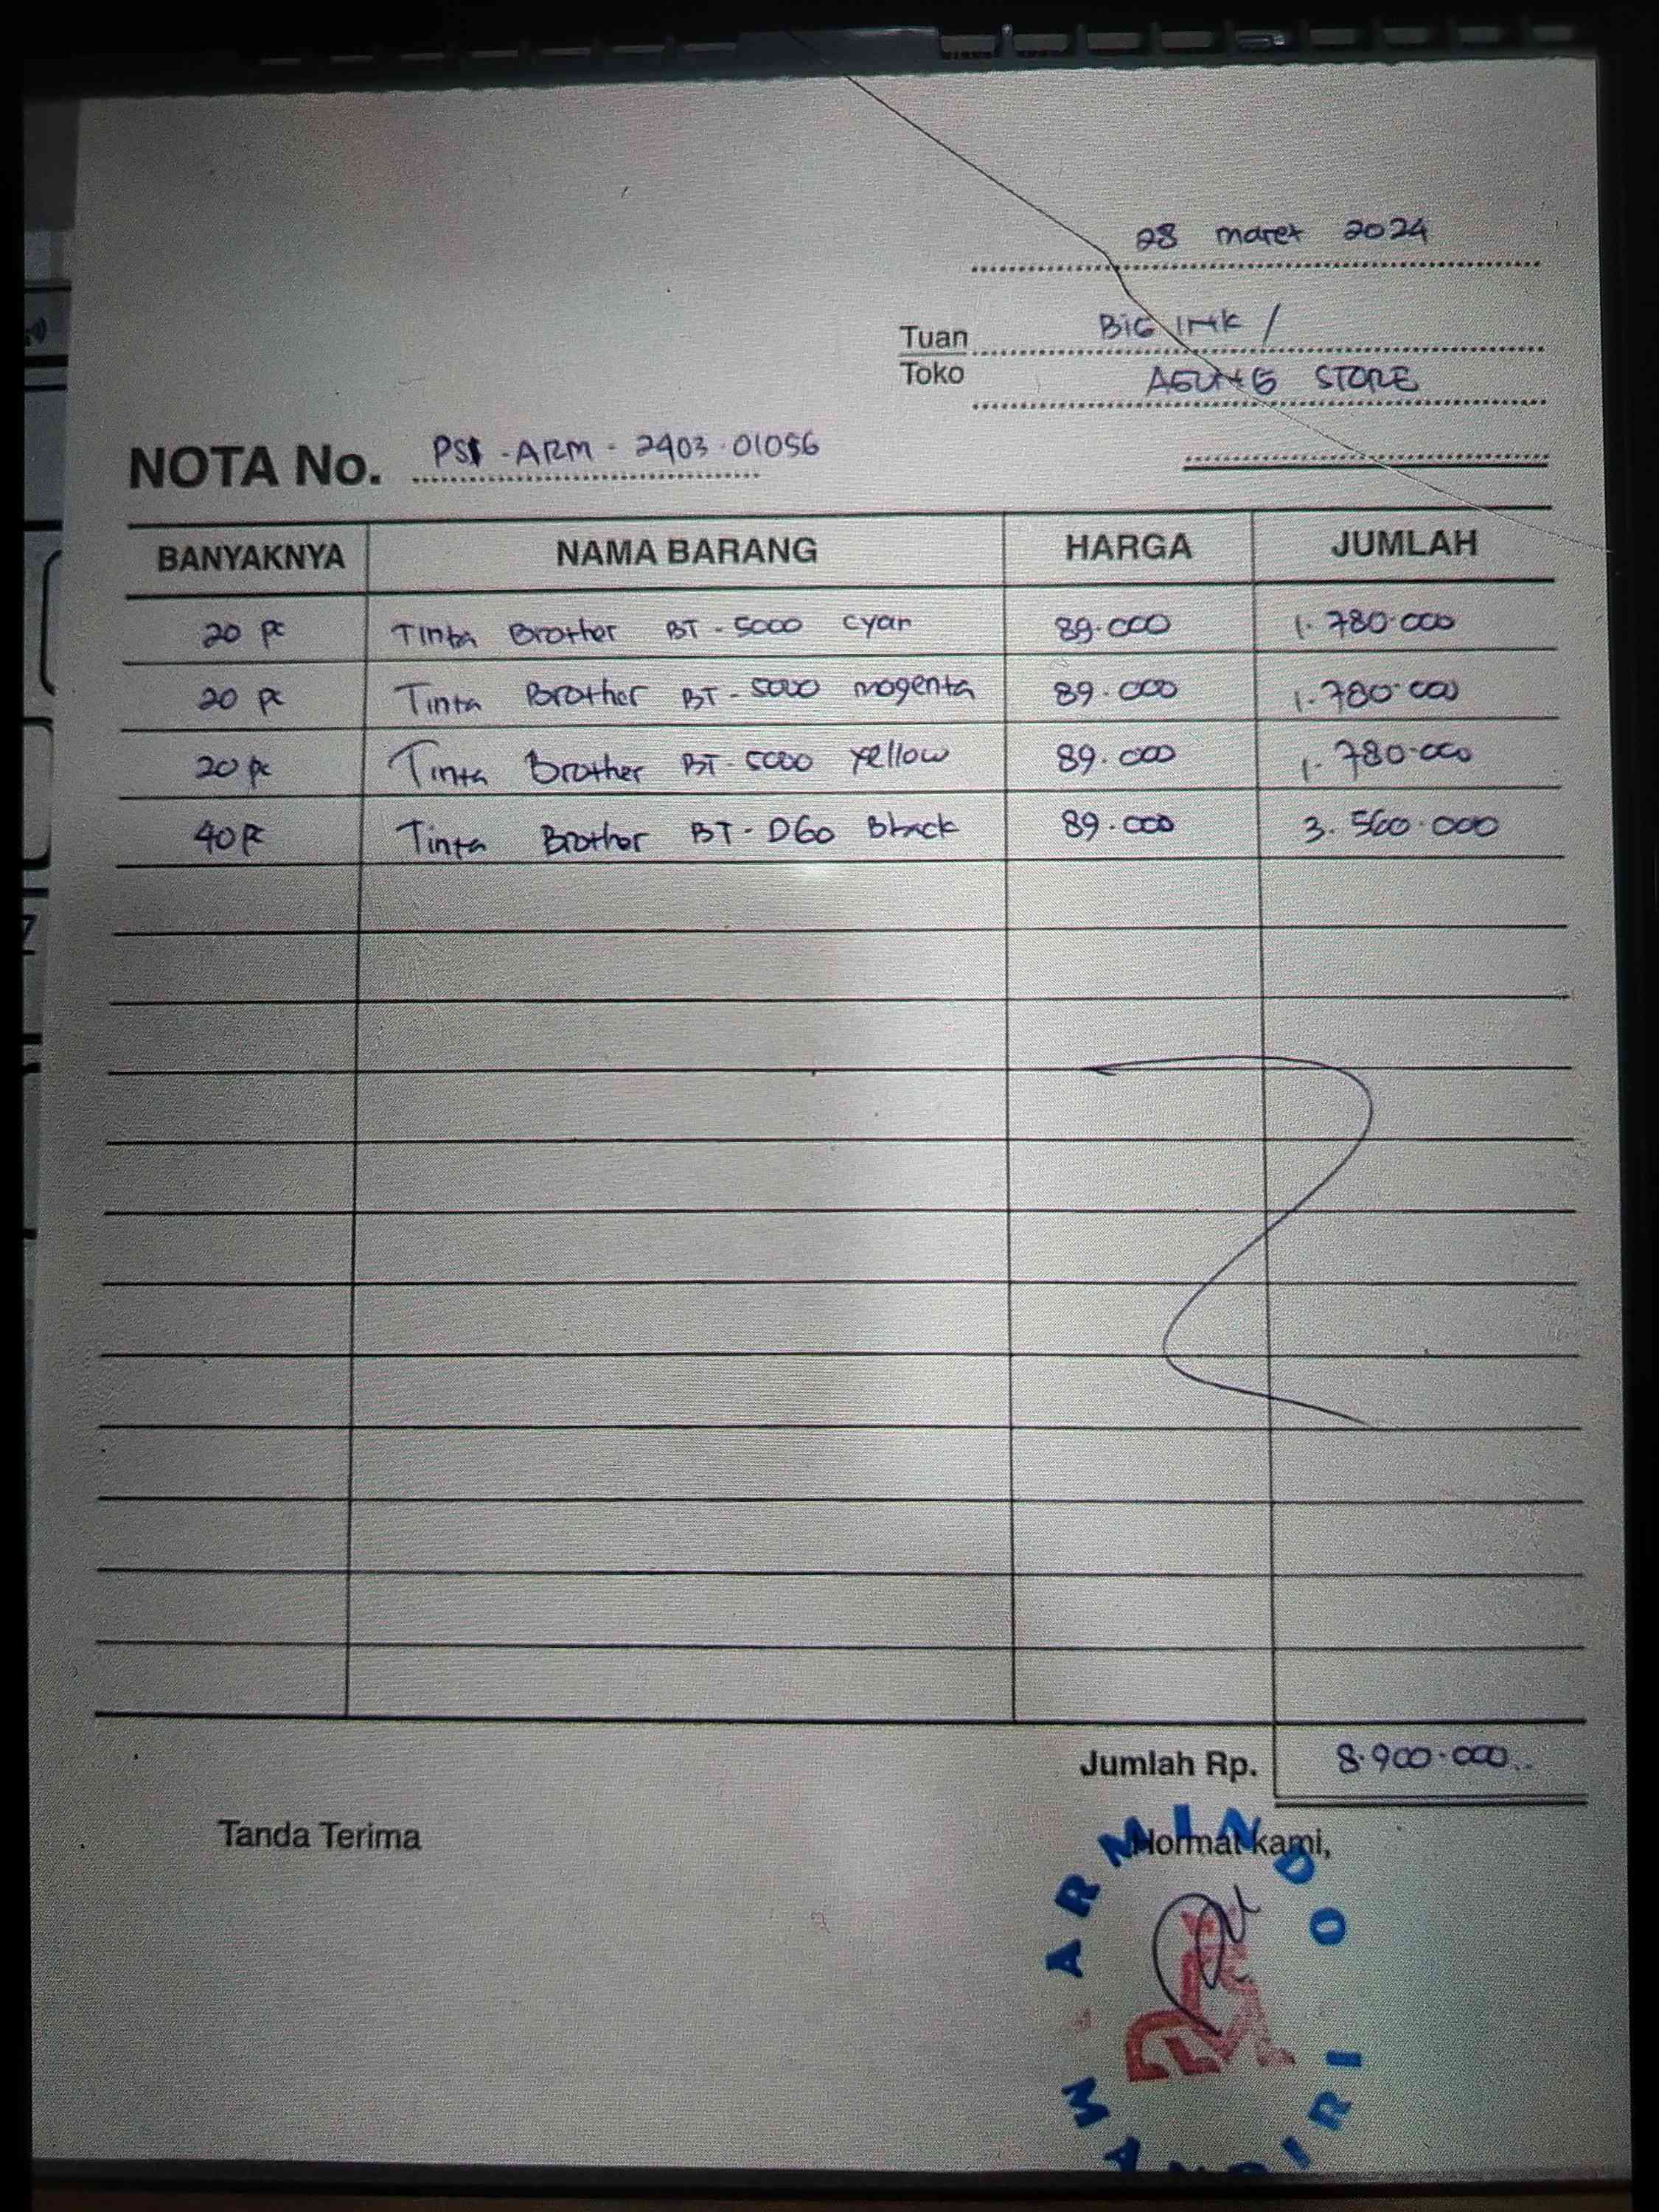 28 maret 2024
Tuan BIG INK /
Toko AGUNG STORE
NOTA No. PSI - ARM - 2403.01056
BANYAKNYA NAMA BARANG HARGA JUMLAH
20 pc Tinta Brother BT - 5000 cyan 89.000 1.780.000
20 pc Tinta Brother BT - 5000 magenta 89.000 1.780.000
20 pc Tinta Brother BT - 5000 yellow 89.000 1.780.000
40 pc Tinta Brother BT - D60 Black 89.000 3.560.000
Jumlah Rp. 8.900.000
Tanda Terima Hormat kami,
ARMINDO
MANDIRI